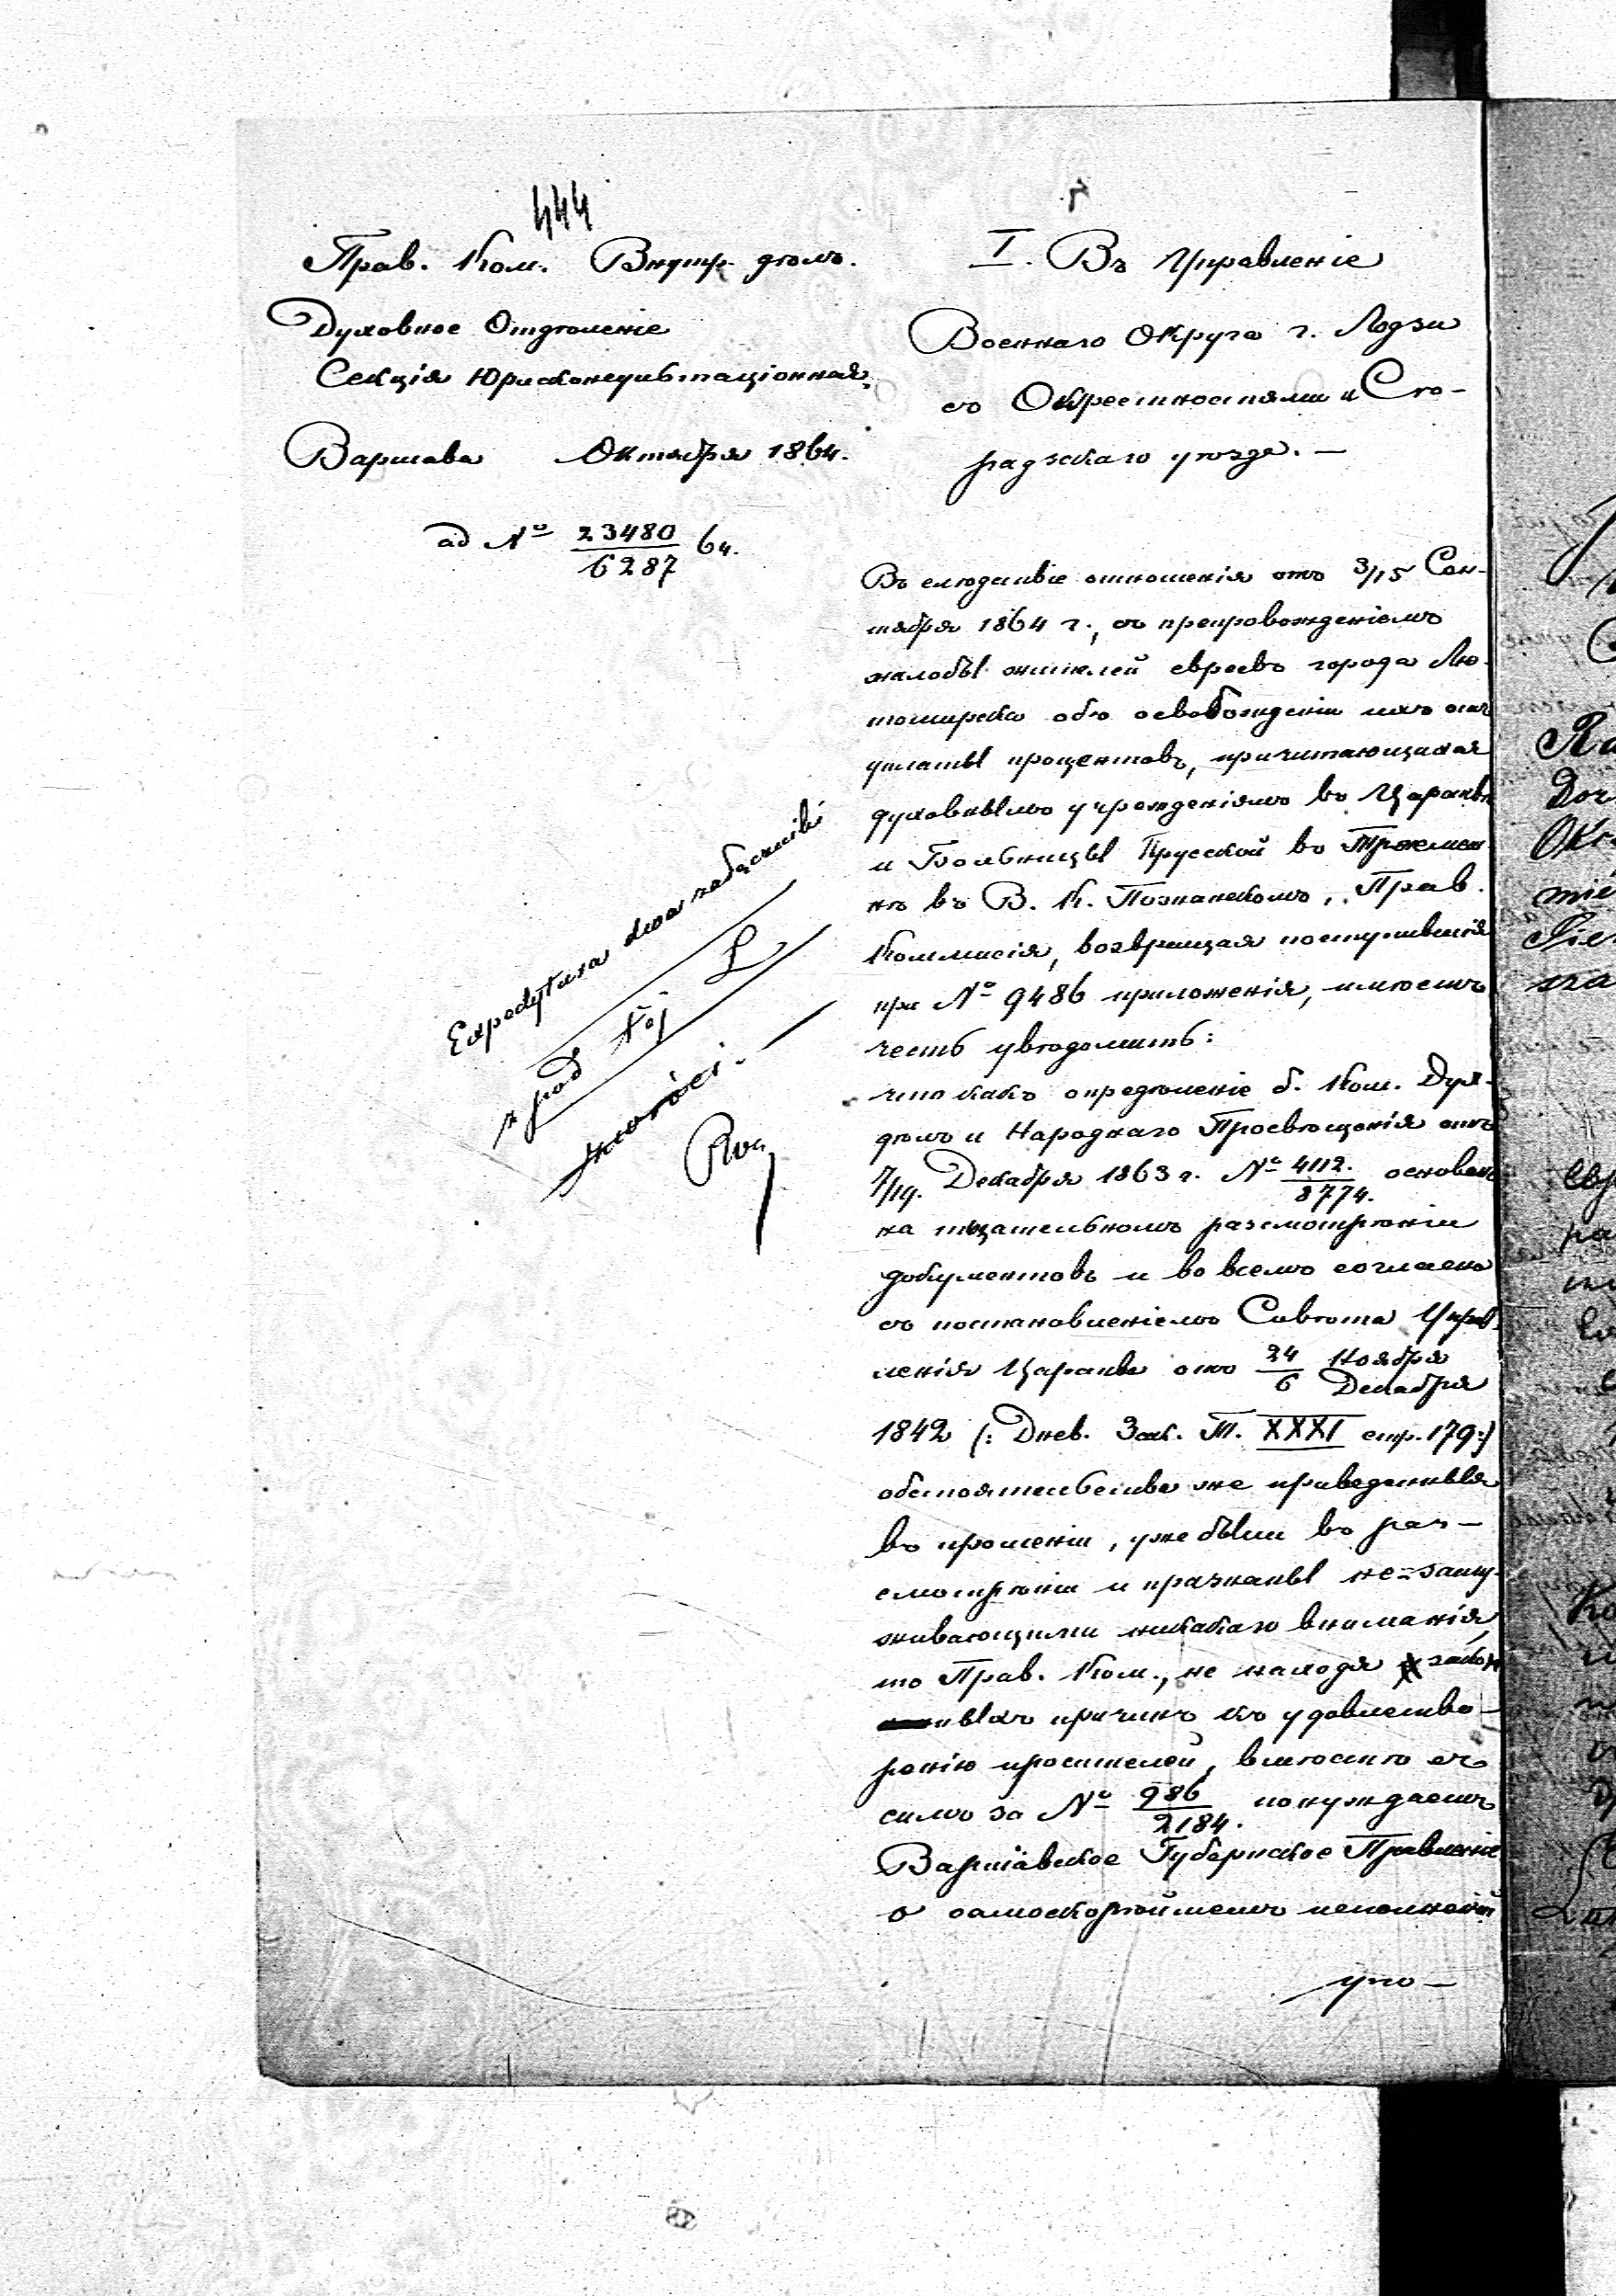 444
Прав. Ком. Внутр. дѣлъ.
Духовное Отдѣленіе
Секція Юрисконсультаціонная.
Варшава Октября 1864.
ad № 23480/6287 64.
I. Въ Управленіе
Военнаго Округа г. Лодзи
съ Окрестностями и Сѣ-
радзскаго уѣзда. —
Въ слѣдствіе отношенія отъ 3/15 Сен-
тября 1864 г., съ препровожденіемъ
жалобы жителей евреевъ города Лю-
томирска объ освобожденіи ихъ отъ
уплаты процентовъ, причитающихся
духовнымъ учрежденіямъ въ Царствѣ
и Больницы Прусской въ Тржемеш-
нѣ въ В. К. Познанскомъ, Прав.
Коммисія, возвращая поступившія
при № 9486 приложенія, имѣетъ
честь увѣдомить:
что какъ опредѣленіе б. Ком. Дух.
дѣлъ и Народнаго Просвѣщенія отъ
7/19. Декабря 1863 г. № 4112./8774. основано
на тщательномъ разсмотрѣніи
документовъ и во всемъ согласно
съ постановленіемъ Совѣта Управ-
ленія Царства отъ 24/6 Ноября/Декабря
1842 (: Днев. Зак. Т. XXXI стр. 179:)
обстоятельства же приведенныя
въ прошеніи, уже были въ раз-
смотрѣніи и признаны не-заслу-
живающими никакаго вниманія,
то Прав. Ком., не находя закон-
ныхъ причинъ къ удовлетво-
ренію просителей, вмѣстѣ съ
симъ за № 986/2184. понуждаетъ
Варшавское Губернское Правленіе
о самоскорѣйшемъ исполненіи
упо-
Expedytura dla
z pod Noj L